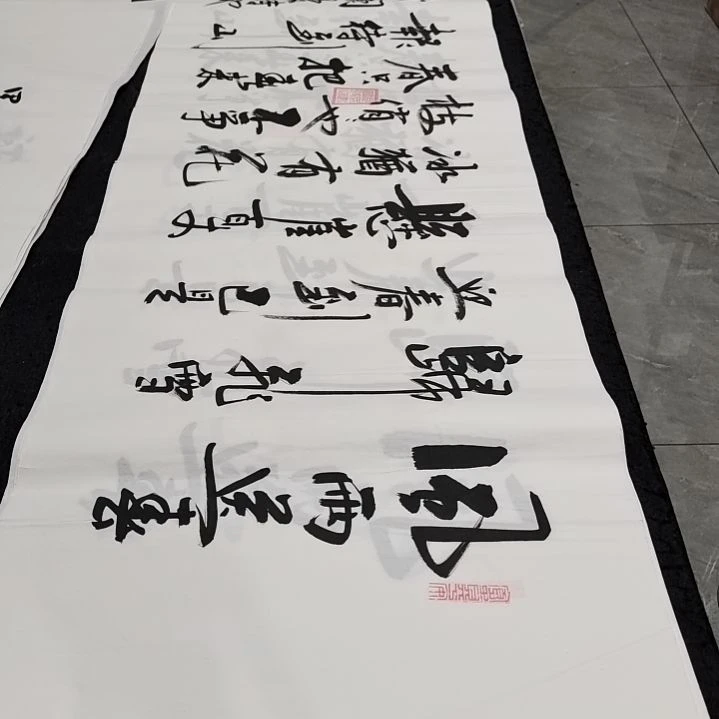 風雨送春
歸飛雪
迎春到已是
懸崖百丈
冰猶有花
枝俏也不爭
春只把春來
報待到山